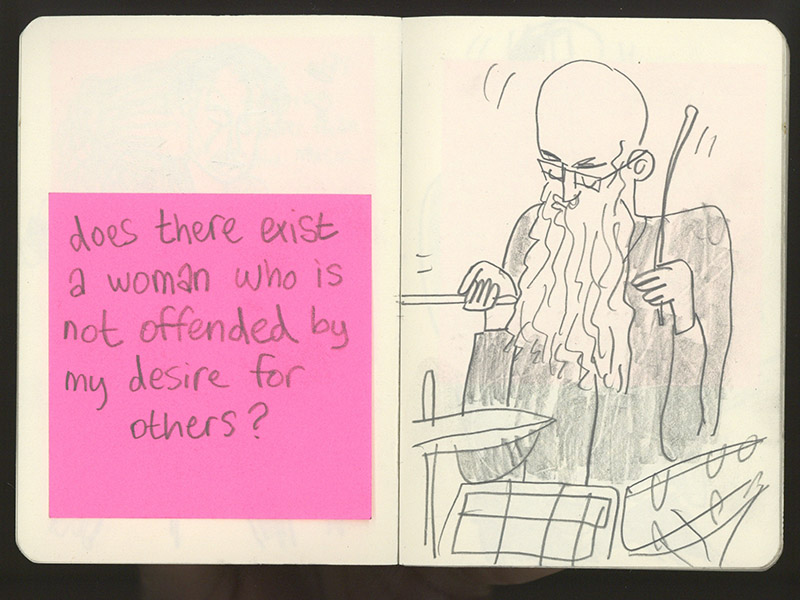 does there exist
a woman who is
not offended by
my desire for
others?